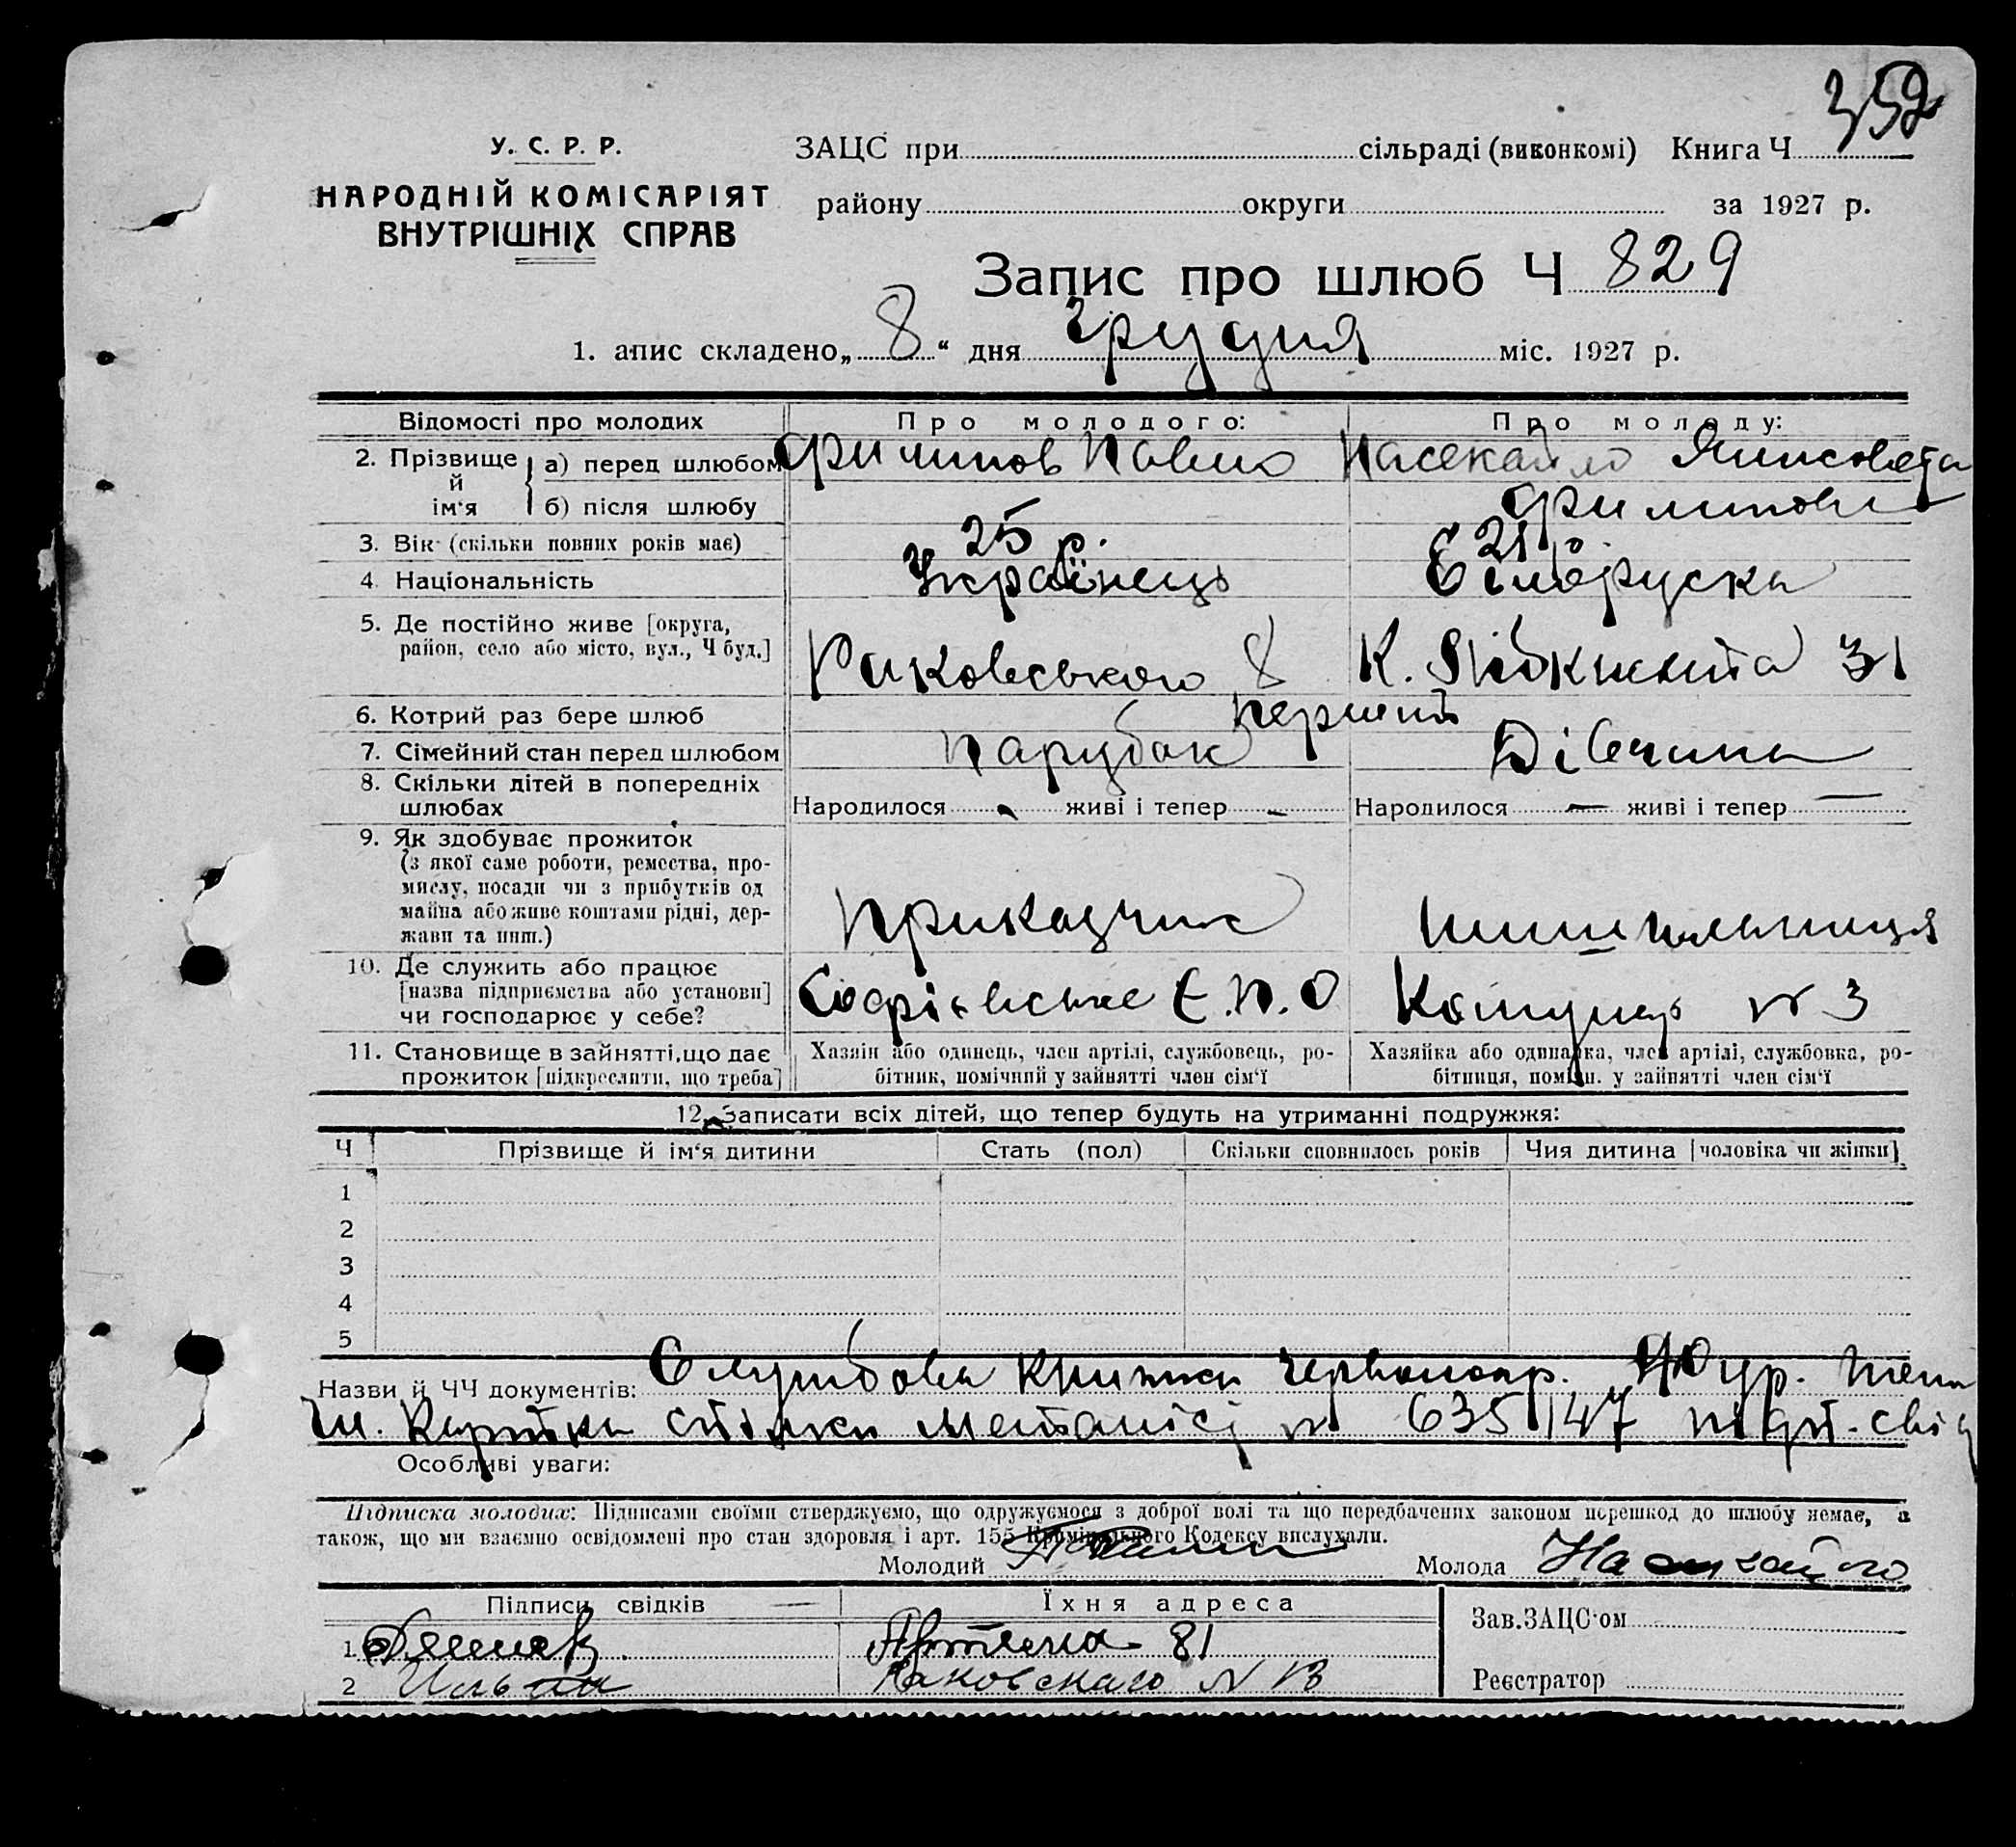 352
У. С. Р. Р.
НАРОДНІЙ КОМІСАРІЯТ
ВНУТРІШНІХ СПРАВ
ЗАЦС при сільраді (виконкомі) Книга Ч
району округи за 1927 р.
Запис про шлюб Ч 829
1. апис складено „ 8 “ дня Грудня міс. 1927 р.
Відомості про молодих Про молодого: Про молоду:
2. Прізвище й ім‘я а) перед шлюбом Филипов Павло Насекайло
б) після шлюбу Филипови
3. Вік (скільки повних років має) 25 р. 21 р.
4. Національність Українець Білоруска
5. Де постійно живе [округа,
район, село або місто, вул., Ч буд.] Раковського 8 К. Лібкнехта 31
6. Котрий раз бере шлюб перший
7. Сімейний стан перед шлюбом парубок Дівчина
8. Скільки дітей в попередніх
шлюбах Народилося - живі і тепер - Народилося — живі і тепер —
9. Як здобуває прожиток
(з якої саме роботи, ремества, про-
мислу, посади чи з прибутків од
майна або живе коштами рідні, дер-
жави та инш.) Приказчик
10. Де служить або працює
[назва підприємства або установи]
чи господарює у себе? Софієвське Є.П.О № 3
11. Становище в зайнятті, що дає
прожиток [підкреслити, що треба]
Хазяїн або одинець, член артілі, службовець, ро-
бітник, помічний у зайнятті член сім‘ї
Хазяйка або одинарка, член артілі, службовка, ро-
бітниця, помічн. у зайнятті член сім‘ї
12. Записати всіх дітей, що тепер будуть на утриманні подружжя:
Ч Прізвище й ім‘я дитини Стать (пол) Скільки сповнилось років Чия дитина [чоловіка чи жінки]
1
2
3
4
5
Назви й ЧЧ документів: Службова книжка червоноар.
картка спілки № 635147
Особливі уваги:
Підписка молодих: Підписами своїми стверджуємо, що одружуємося з доброї волі та що передбачених законом перешкод до шлюбу немає, а
також, що ми взаємно освідомлені про стан здоровля і арт. 155 Кримінального Кодексу вислухали.
Молодий Молода Насекайло
Підписи свідків Їхня адреса
1. Артема 81
2 Раковскаго N
Зав. ЗАЦС‘ом
Реєстратор